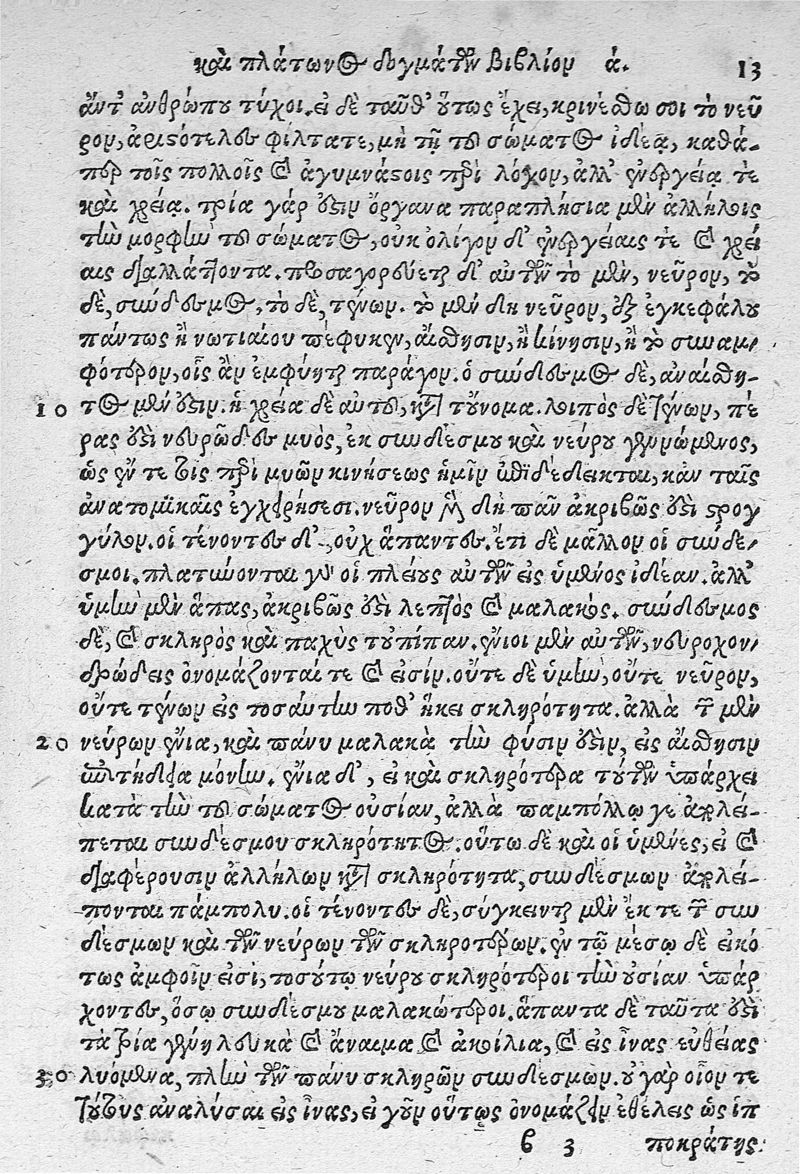 καὶ πλάτωνος δογμάτων βιβλίον ά. 13
ἀντ' ἀνθρώπου τύχοι. εἰ δὲ ταῦθ' οὕτως ἔχει, κρινέσθω σοι τὸ νεῦ
ρον, ἀριστότελες φίλτατε, μὴ τῇ τοῦ σώματος ἰδέᾳ, καθά-
περ τοῖς πολλοῖς καὶ ἀγυμνάστοις περὶ λόγον, ἀλλ' ἐνεργείᾳ τε
καὶ χρείᾳ. τρία γάρ ἐστιν ὄργανα παραπλήσια μὲν ἀλλήλοις
τὴν μορφὴν τοῦ σώματος, οὐκ ὀλίγον δ' ἐνεργείαις τε καὶ χρεί
αις διαλλάττοντα. προσαγορεύεται δ' αὐτῶν τὸ μὲν, νεῦρον, τὸ
δὲ, σύνδεσμος, τὸ δὲ, τένων. τὸ μὲν δὴ νεῦρον, ἐξ ἐγκεφάλου
πάντως ἢ νωτιαίου πέφυκεν, αἴσθησιν, ἢ κίνησιν, ἢ τὸ συναμ-
φότερον, οἷς ἂν ἐμφύηται παράγον. ὁ σύνδεσμος δὲ, ἀναίσθη-
10 τος μὲν ἐστιν. ἡ χρεία δὲ αὐτοῦ, κατὰ τοὔνομα. λοιπὸς δὲ τένων, πέ
ρας ἐστὶ νευρῶδες μυὸς, ἐκ συνδέσμου καὶ νεύρου γεννώμενος,
ὡς ἔν τε τοῖς περὶ μυῶν κινήσεως ἡμῖν ἐπιδέδεικται, κἀν ταῖς
ἀνατομικαῖς ἐγχειρήσεσι. νεῦρον μὲν δὴ πᾶν ἀκριβῶς ἐστὶ στρογ
γύλον. οἱ τένοντες δ', οὐχ ἅπαντες. ἔτι δὲ μᾶλλον οἱ σύνδε-
σμοι. πλατύνονται γὰρ οἱ πλείους αὐτῶν εἰς ὑμένος ἰδέαν. ἀλλ'
ὑμὴν μὲν ἅπας, ἀκριβῶς ἐστὶ λεπτὸς καὶ μαλακός. σύνδεσμος
δὲ, καὶ σκληρὸς καὶ παχὺς τοὐπίπαν. ἔνιοι μὲν αὐτῶν, νευροχον-
δρώδεις ὀνομάζονταί τε καὶ εἰσίν. οὔτε δὲ ὑμὴν, οὔτε νεῦρον,
οὔτε τένων εἰς τοσαύτην ποθ' ἥκει σκληρότητα. ἀλλὰ τῶν μὲν
20 νεύρων ἔνια, καὶ πάνυ μαλακὰ τὴν φύσιν ἐστὶν, εἰς αἴσθησιν
ἐπιτήδεια μόνην. ἔνια δ', εἰ καὶ σκληρότερα τούτων ὑπάρχει
κατὰ τὴν τοῦ σώματος οὐσίαν, ἀλλὰ παμπόλλῳ γε ἀπολεί-
πεται συνδέσμου σκληρότητος. οὕτω δὲ καὶ οἱ ὑμένες, εἰ καὶ
διαφέρουσιν ἀλλήλων κατὰ σκληρότητα, συνδέσμων ἀπολεί-
πονται πάμπολυ. οἱ τένοντες δὲ, σύγκεινται μὲν ἔκ τε τῶν συν
δέσμων καὶ τῶν νεύρων τῶν σκληροτέρων. ἐν τῷ μέσῳ δὲ εἰκό
τως ἀμφοῖν εἰσὶ, τοσούτῳ νεύρου σκληρότεροι τὴν οὐσίαν ὑπάρ
χοντες, ὅσῳ συνδέσμου μαλακώτεροι. ἅπαντα δὲ ταῦτα ἐστὶ
τὰ τρία γένη λευκὰ καὶ ἄναιμα καὶ ἀκοίλια, καὶ εἰς ἶνας εὐθείας
30 λυόμενα, πλὴν τῶν πάνυ σκληρῶν συνδέσμων. οὐ γὰρ οἷόν τε
τούτους ἀναλύσαι εἰς ἶνας, εἰ γοῦν οὕτως ὀνομάζειν ἐθέλεις ὡς ἱπ
β 3 ποκράτης